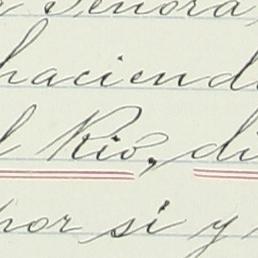 Señora,
haciend
l Rio, di
por si y